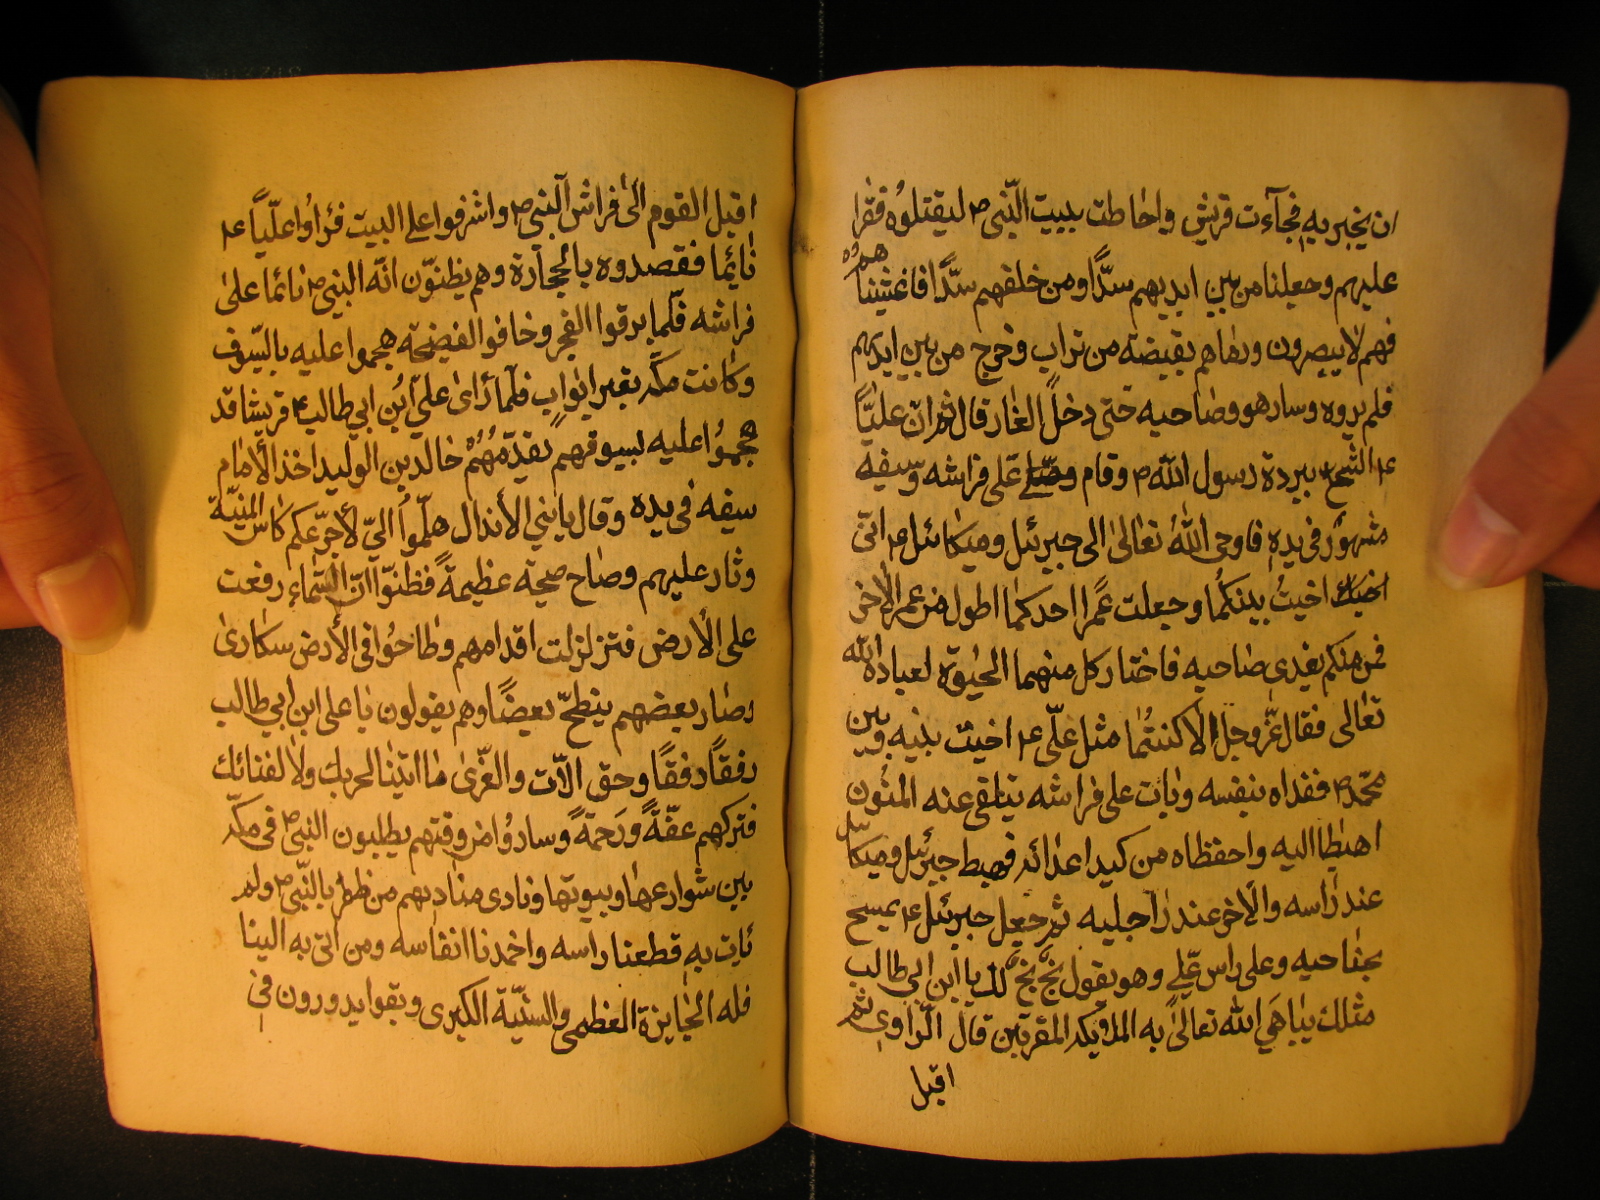 ان يخبر به فجآءت قريش واحاطت ببيت النّبي ص ليقتلوُه فقرا
عليهم وجعلنا من بين ايديهم سدًّا ومن خلفهم سدًّا فاغشينا هم
فهم لا يبصرون ورماهم بقبضة من تراب وخرج من بين ايديهم
فلم يروه وسار هو وصاحبه حتى دخل الغار قال ثم ان عليًّا
ع اتشح ببردة رسول الله ص وقام على فراشه وسيفه
مشهوُر في يده فاوحى اللهُ تعالىٰ الى جبرئيل وميكائيل ع انّى
اخيتُ بينكما وجعلت عمر احدكما اطول من عمر الاخر
فمن منكم يفدى صاحبه فاختار كل منهما الحيوة لعبادة الله
تعالى فقال عزّ وجل الا كنتما مثل علّى ع اخيت بينه وبين
محمّد ص ففداه بنفسه وبات على فراشه يتلقى عنه المنُون
اهبطا اليه واحفظاه من كيد اعدائه فهبط جبرئيل وميكائيل
عند راسه والاخر عند راجليه ثم جعل جبرئيل ع يمسح
بجناحيه وعلى راس علي وهو يقول بخّ بخّ لك يا ابن ابي طالب
مثلك يباهي الله تعالىٰ به الملئيكه المقربين قال الرّاوي ثم
اقبل
اقبل القوم الىٰ فراش النبي ص واشرفوا على البيت فراوُا عليّاً ع
نائما فقصدوه بالحجارة وهم يظنّون انّه النبي ص نائما علىٰ
فراشه فلّما برقوا الفجر وخافو الفضيحة هجموا عليه بالسّيوف
وكانت مكّه بغير ابواب فلّما راىٰ علي ابن ابي طالب ع قريشا قد
هجموُا عليه بسيوفهم يقدّمُهُم خالد بن الوليد اخذ الأمام
سيفه فى يده وقال يا بني الأنذال هلّموُا اليّ لأجرّعكم كأس المنيّة
وثار عليهم وصاح صيحة عظيمةً فظنوّا انّ السّماء رفعت
على الأرض فتزلزلت اقدامهم وطاحوُا في الأرض سكارىٰ
وصار بعضهم ينطح بعضًا وهم يقولون يا على ابن ابي طالب
رفقاً رفقًا وحق الاّت والعّزىٰ ما اتينا لحربك ولا لقتالك
فتركهم عفّةً ورَحمةً وساروُا من وقتهم يطلبون النبي ص فى مكّه
بين شوارعها وبيوتها ونادى مناديهم من ظفر بالنّبي ص ولم
ئات به قطعنا راسه واخمدنا انفاسه ومن اتى به الينا
فله الجايزة العظمى والسنيّة الكبرى وبقوا يدورون في